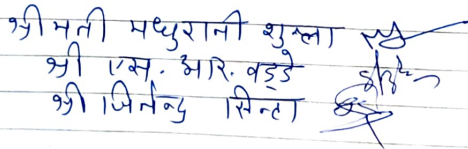 श्रीमती मधुरानी शुक्ला
श्री एस. आर. वड्डे
श्री जितेन्द्र सिन्हा